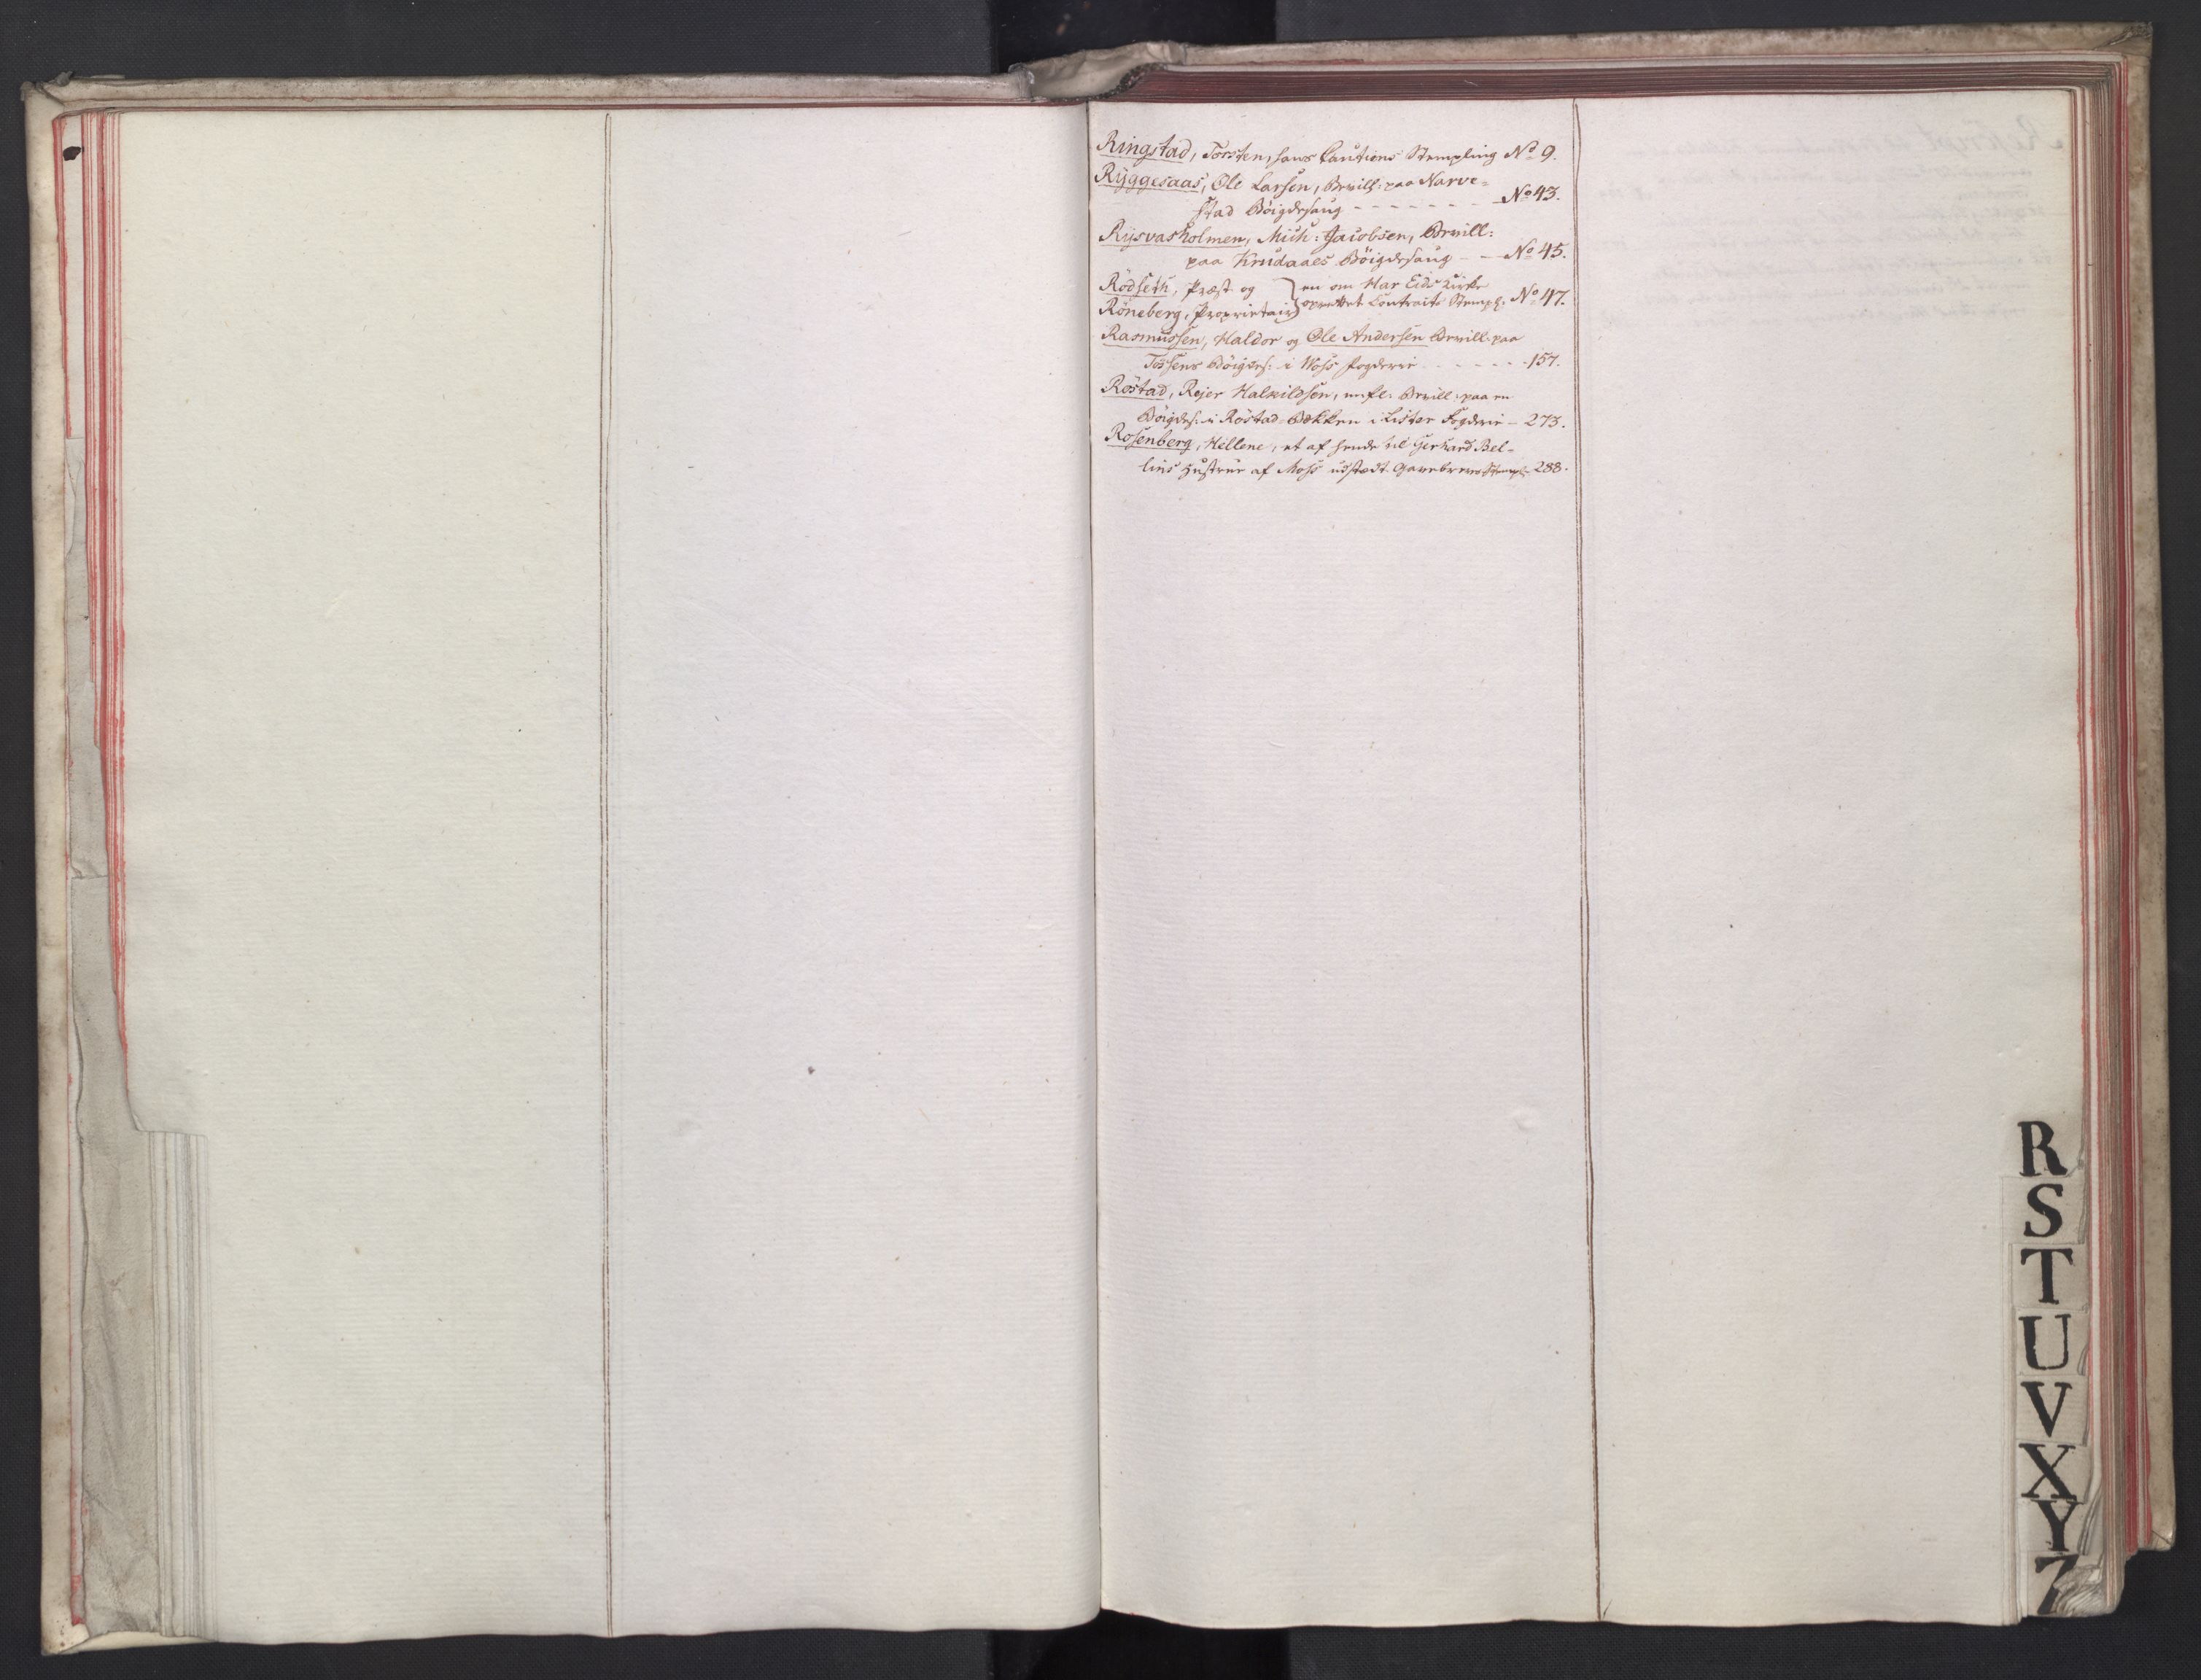 Ringstad, Torsten, hans Cautions Stempling No 9.
Ryggesaas, Ole Larsen, Bevill: paa Narve-
stad Böigdesaug - - - - - - - No 43.
Rysvasholmen, Mich: Jacobsen, Bevill:
paa Krudaaes Böigdesaug - - No 45.
Rödseth, Præst og } en om Har Eids Kirke
Röneberg, Proprietair } oprettet Contracts Stempl: No 47.
Rasmussen, Haldor og Ole Andersen Bevill: paa
Tossens Böigdes: i Woss Fogderie - - - - - - 157.
Röstad, Rejer Halkildsen, m: fl: Bevill: paa en
Böigdes: i Röstad-Bækken i Lister Fogderie - 273.
Rosenberg, Hellene, et af hende til Gerhard Bel-
lins Hustrue af Moss udstædt Gavebrevs Stempl: 288.
R
S
T
U
V
X
Y
Z